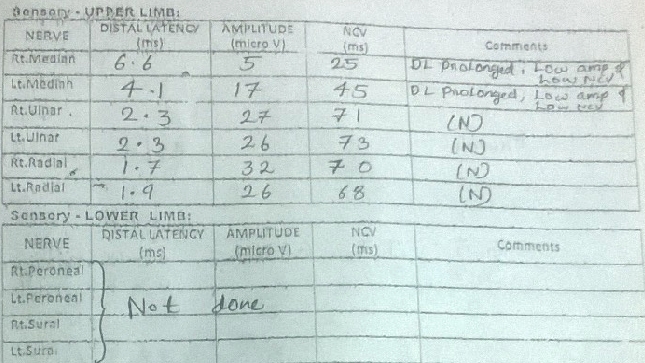 Sensory - UPPER LIMB:
NERVE DISTAL LATENCY (ms) AMPLITUDE (micro V) NCV (ms) Comments
Rt.Median 6.6 5 25 DL Prolonged, Low amp & Low NCV
Lt.Median 4.1 17 45 DL Prolonged, Low amp & Low NCV
Rt.Ulnar 2.3 27 71 (N)
Lt.Ulnar 2.3 26 73 (N)
Rt.Radial 1.7 32 70 (N)
Lt.Radial 1.9 26 68 (N)
Sensory - LOWER LIMB:
NERVE DISTAL LATENCY (ms) AMPLITUDE (micro V) NCV (ms) Comments
Rt.Peroneal
Lt.Peroneal Not done
Rt.Sural
Lt.Sural